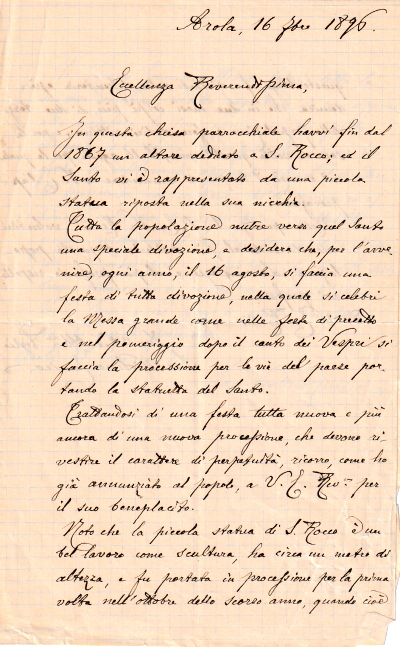 Arola, 16 7bre 1896.
Eccellenza Reverendissima,
In questa chiesa parrocchiale havvi fin dal
1867 un altare dedicato a S. Rocco; ed il
Santo vi è rappresentato da una piccola
statua riposta nella sua nicchia.
Tutta la popolazione nutre verso quel Santo
una speciale divozione, e desidera che, per l'avve-
nire, ogni anno, il 16 agosto, si faccia una
festa di tutta divozione, nella quale si celebri
la Messa grande come nelle feste di precetto
e nel pomeriggio dopo il canto dei Vespri si
faccia la processione per le vie del paese por-
tando la statuetta del Santo.
Trattandosi di una festa tutta nuova e più
ancora di una nuova processione, che devono ri-
vestire il carattere di perpetuità, ricorro, come ho
già annunziato al popolo, a V. E. Rev.ma per
il suo beneplacito.
Noto che la piccola statua di S. Rocco è un
bel lavoro come scultura, ha circa un metro di
altezza, e fu portata in processione per la prima
volta nell'ottobre dello scorso anno, quando cioè